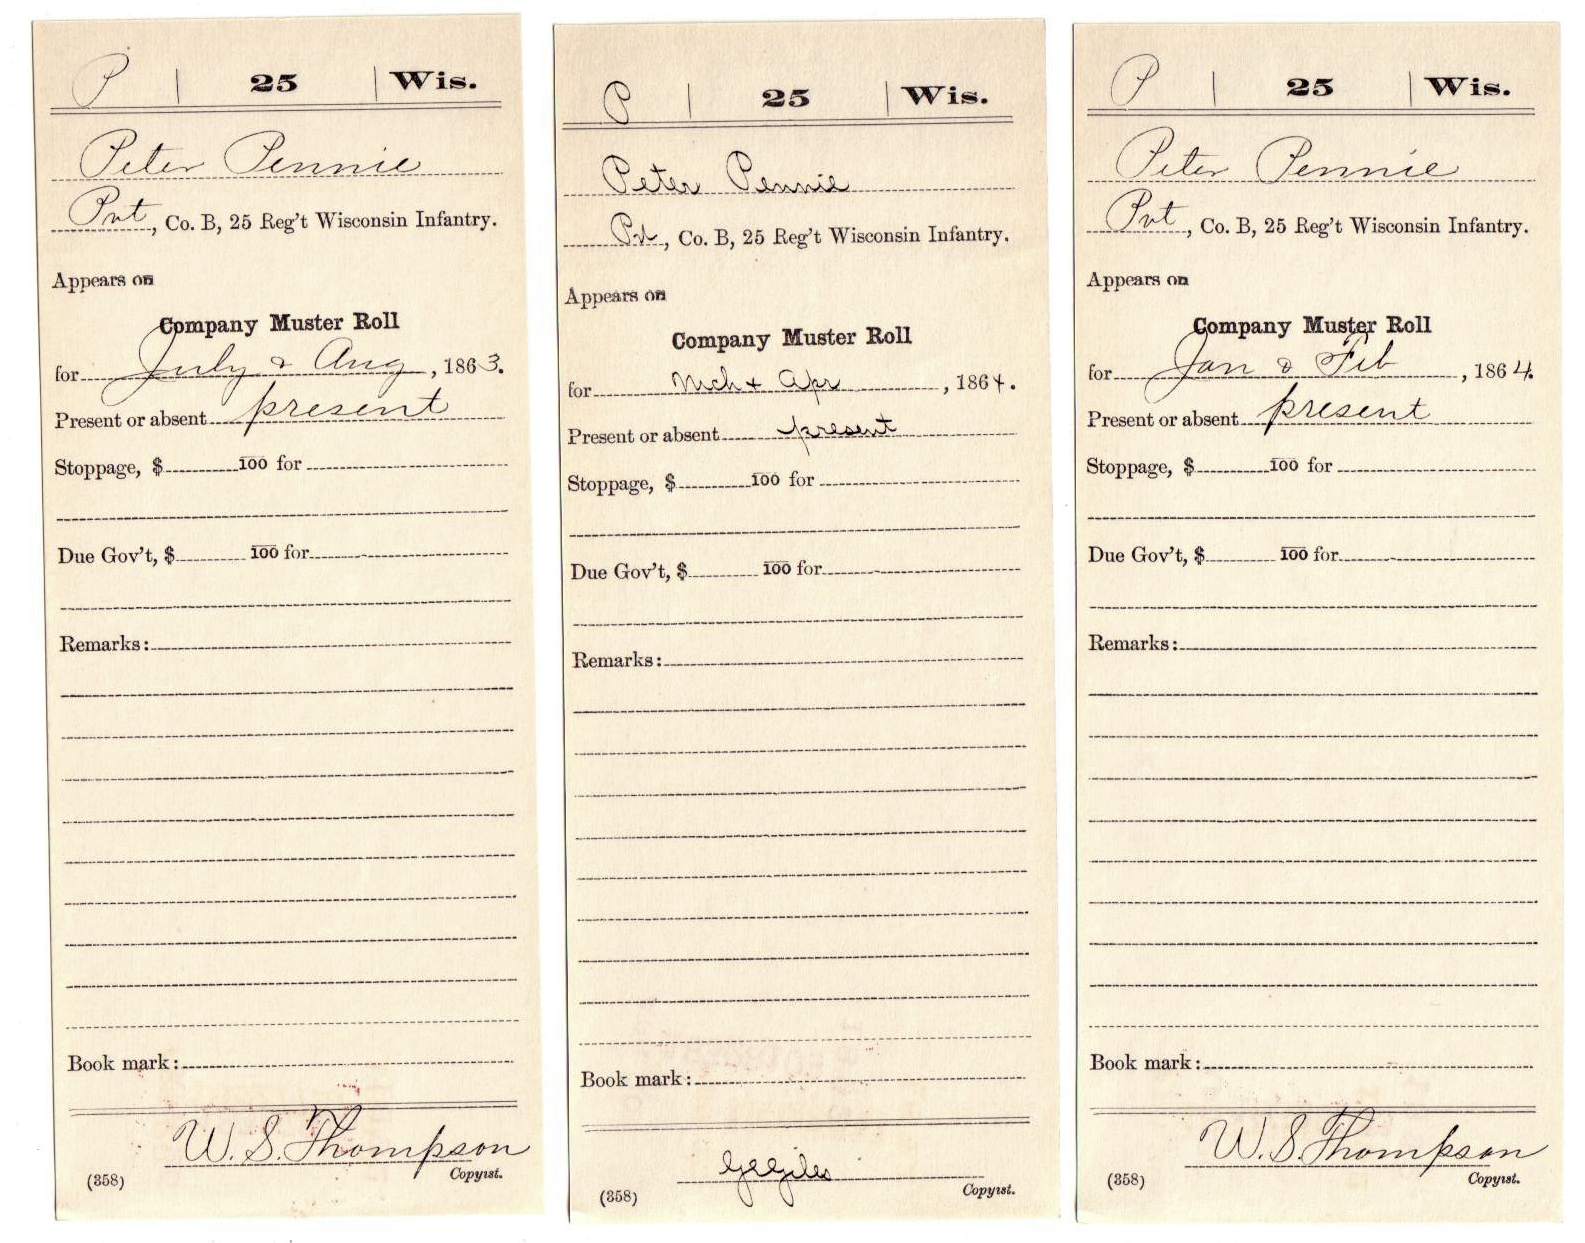 P 25 Wis.
Peter Pennie
Pvt, Co. B, 25 Reg't Wisconsin Infantry.
Appears on
Company Muster Roll
for July & Aug, 1863.
Present or absent present
Stoppage, $ 100 for
Due Gov't, $ 100 for
Remarks:
Book mark:
W. S. Thompson
(358) Copyist.
P 25 Wis.
Peter Pennie
Pvt, Co. B, 25 Reg't Wisconsin Infantry.
Appears on
Company Muster Roll
for Mch & Apr, 1864.
Present or absent present
Stoppage, $ 100 for
Due Gov't, $ 100 for
Remarks:
Book mark:
Giles
(358) Copyist.
P 25 Wis.
Peter Pennie
Pvt, Co. B, 25 Reg't Wisconsin Infantry.
Appears on
Company Muster Roll
for Jan & Feb, 1864.
Present or absent present
Stoppage, $ 100 for
Due Gov't, $ 100 for
Remarks:
Book mark:
W. S. Thompson
(358) Copyist.